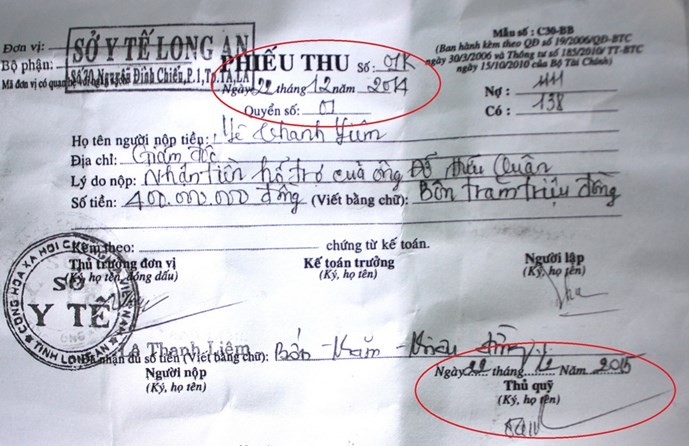 Đơn vị:
SỞ Y TẾ LONG AN
Bộ phận:
Số 70 Nguyễn Đình Chiểu, P.1, Tp.TA, LA
Mã đơn vị có quan hệ
PHIẾU THU Số: 01K
Ngày 22 tháng 12 năm 2014
Quyển số: 01
Mẫu số : C30-BB
(Ban hành kèm theo QĐ số 19/2006/QĐ-BTC
ngày 30/3/2006 và Thông tư số 185/2010/TT-BTC
ngày 15/10/2010 của Bộ Tài Chính)
Nợ : 1111
Có : 138
Họ tên người nộp tiền: Lê Thanh Liêm
Địa chỉ: Giám đốc
Lý do nộp: Nhận tiền hổ trợ của ông Đỗ Hiếu Quân
Số tiền: 400.000.000 đồng (Viết bằng chữ): Bốn trăm triệu đồng
Kèm theo: chứng từ kế toán.
Thủ trưởng đơn vị
(Ký, họ tên, đóng dấu)
Kế toán trưởng
(Ký, họ tên)
Người lập
(Ký, họ tên)
CỘNG HÒA XÃ HỘI CHỦ NGHĨA VIỆT NAM
SỞ
Y TẾ
TỈNH LONG AN
Lê Thanh Liêm
Đã nhận đủ số tiền (Viết bằng chữ): Bốn trăm triệu đồng
Người nộp
(Ký, họ tên)
Ngày 22 tháng 12 Năm 2015
Thủ quỹ
(Ký, họ tên)